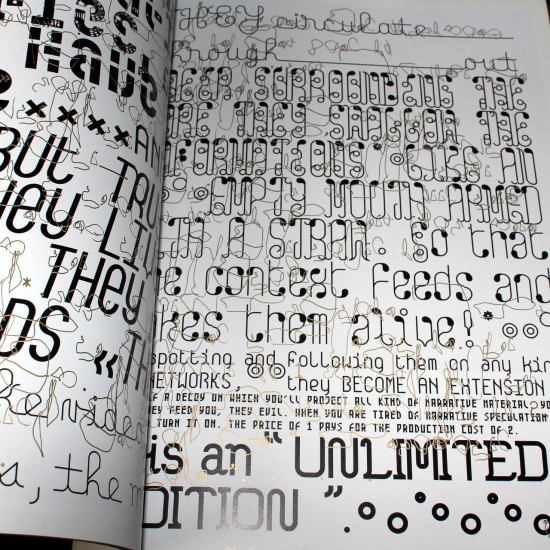 Have
AN
BUT TRU
HEY LI
THEY
DS « TH
ke video
s, the m
THEY circulate
out
SURROUNDING THE
THE THEY FOR THE
AN
EMPTY MOUTH ARMED
WITH A STRAW. So that
e context feeds and
kes them alive!
spotting and following them on any kin
NETWORKS, they BECOME AN EXTENSION
F A DECOY ON WHICH YOU'LL PROJECT ALL KIND OF NARRATIVE MATERIAL YO
HEY FEED YOU, THEY EVIL. WHEN YOU ARE TIRED OF NARRATIVE SPECULATION
TURN IT ON. THE PRICE OF 1 PAYS FOR THE PRODUCTION COST OF 2.
is an “UNLIMITED
DITION”.